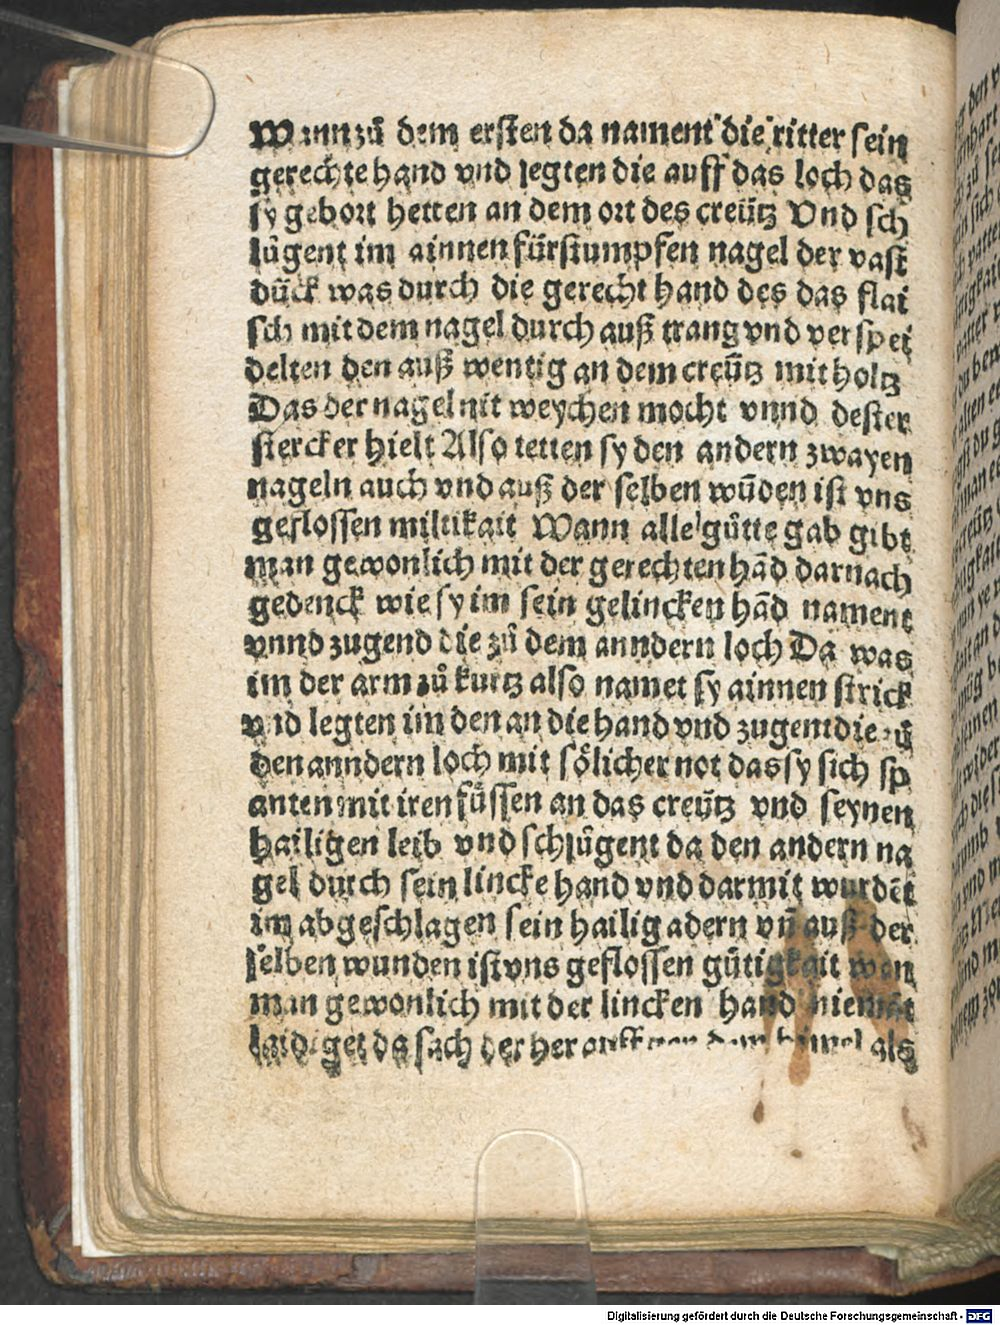 Wann zů dem ersten da nament die ritter sein
gerechte hand vnd legten die auff das loch das
sy gebort hetten an dem ort des creütz Vnd sch
lůgent im ainnen fürstumpfen nagel der vast
dück was durch die gerecht hand des das flai
sch mit dem nagel durch auß trang vnd verspei
delten den auß wentig an dem creütz mit holtz
Das der nagel nit weychen mocht vnnd dester
stercker hielt Also tetten sy den andern zwayen
nageln auch vnd auß der selben wūden ist vns
geflossen miltikait Wann alle gůtte gab gibt
man gewonlich mit der gerechten hād darnach
gedenck wie sy im sein gelincken hād nament
vnnd zugend die zů dem anndern loch Da was
im der arm zů kurtz also namet sy ainnen strick
vnd legten im den an die hand vnd zugent die zů
den anndern loch mit sölicher not das sy sich sp
anten mit iren füssen an das creütz vnd seynen
hailigen leib vnd schlůgent da den andern na
gel durch sein lincke hand vnd darmit wurdēt
im abgeschlagen sein hailig adern vn̄ auß der
selben wunden ist vns geflossen gütigkait wan
man gewonlich mit der lincken hand niemāt
laidiget da sach der her auff gen dem himel als
Digitalisierung gefördert durch die Deutsche Forschungsgemeinschaft - DFG